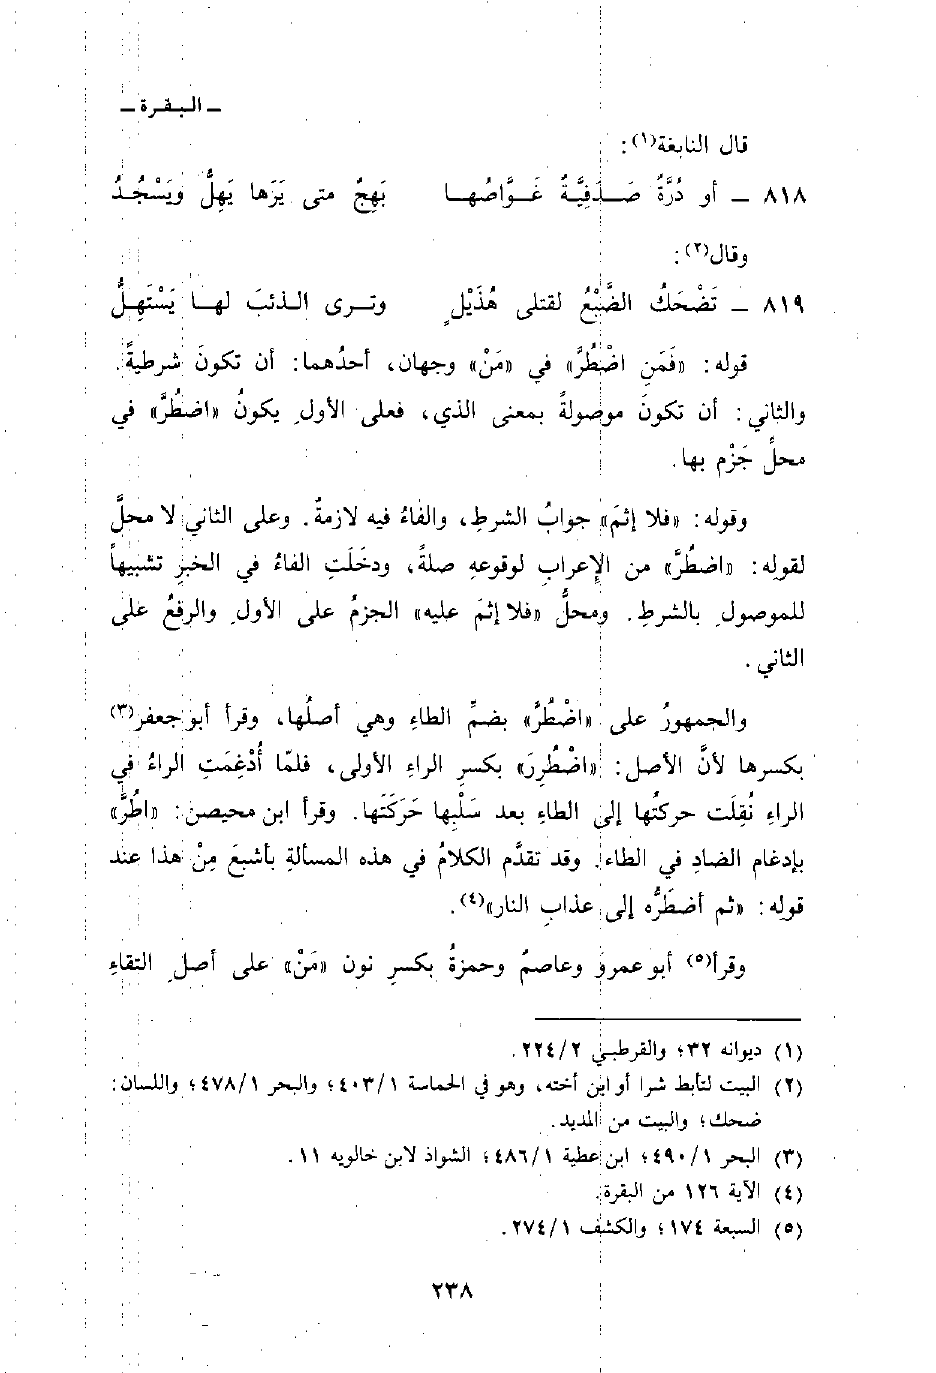 ـ البقرة ـ
قال النابغة(١):
٨١٨ ـ أو دُرَّةٌ صَدَفِيَّةٌ غَوَّاصُها بَهِجٌ متى يَرَها يَهِلُّ ويَسْجُدُ
وقال(٢):
٨١٩ ـ تَضْحَكُ الضَّبْعُ لقتلى هُذَيْلٍ وترى الذئبَ لها يَسْتَهِلُّ
قوله: «فَمَنِ اضْطُرَّ» في «مَنْ» وجهان، أحدُهما: أن تكونَ شرطيةً.
والثاني: أن تكونَ موصولةً بمعنى الذي، فعلى الأولِ يكونُ «اضطُرَّ» في
محلِّ جَزْم بها.
وقوله: «فلا إثمَ» جوابُ الشرطِ، والفاءُ فيه لازمةٌ. وعلى الثاني لا محلَّ
لقوله: «اضطُرَّ» من الإِعرابِ لوقوعهِ صلةً، ودخَلَتِ الفاءُ في الخبرِ تشبيهاً
للموصولِ بالشرطِ. ومحلُّ «فلا إثمَ عليه» الجزمُ على الأولِ والرفعُ على
الثاني.
والجمهورُ على «اضْطُرَّ» بضمِّ الطاءِ وهي أصلُها، وقرأ أبو جعفر(٣)
بكسرها لأنَّ الأصل: «اضْطُرِرَ» بكسرِ الراءِ الأولى، فلمّا أُدْغِمَتِ الراءُ في
الراءِ نُقِلَت حركتُها إلى الطاءِ بعد سَلْبِها حَرَكَتَها. وقرأ ابن محيصن: «اطُرَّ»
بإدغام الضادِ في الطاء. وقد تقدَّم الكلامُ في هذه المسألةِ بأشبعَ مِنْ هذا عند
قوله: «ثم أضطَرُّه إلى عذابِ النار»(٤).
وقرأ(٥) أبو عمروٍ وعاصمٌ وحمزةُ بكسرِ نون «مَنْ» على أصلِ التقاءِ
(١) ديوانه ٣٢؛ والقرطبي ٢/ ٢٢٤.
(٢) البيت لتأبط شرا أو ابن أخته، وهو في الحماسة ١/ ٤٠٣؛ والبحر ١/ ٤٧٨؛ واللسان:
ضحك؛ والبيت من المديد.
(٣) البحر ١/ ٤٩٠؛ ابن عطية ١/ ٤٨٦؛ الشواذ لابن خالويه ١١.
(٤) الآية ١٢٦ من البقرة.
(٥) السبعة ١٧٤؛ والكشف ١/ ٢٧٤.
٢٣٨